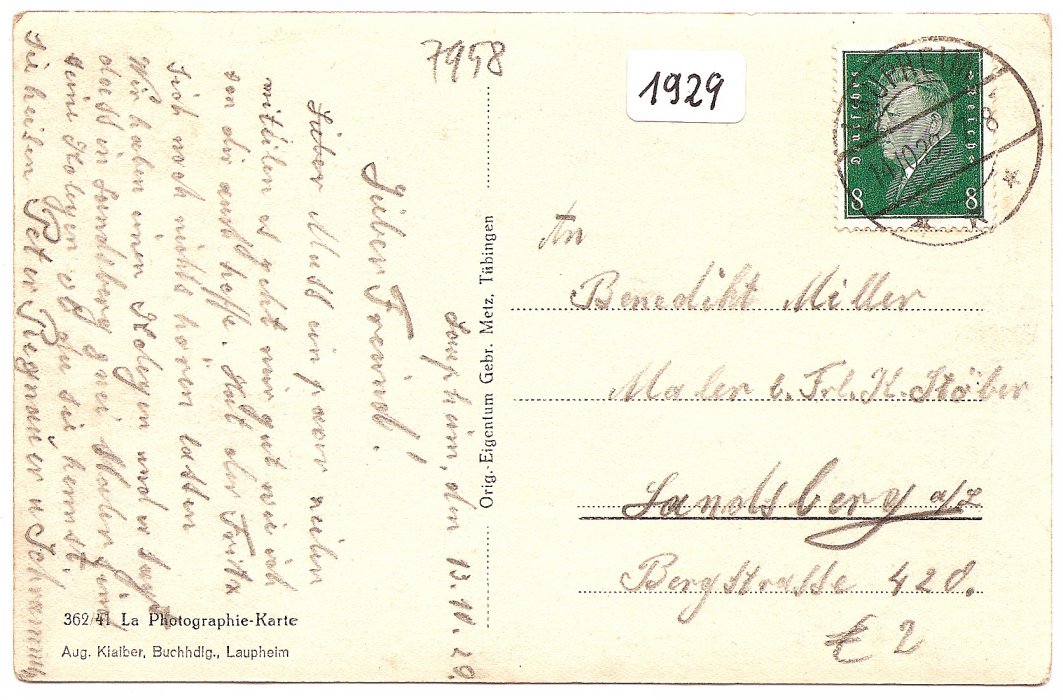 7958
1929
Deutsches Reich
8 8
Laupheim, den 13.10.29.
Lieber Freund!
Lieber Muss ein paar zeilen
mitteilen es geht mir gut wie ich
von dir auch hoffe. Hat der Fritz
sich noch nichts hören lassen
Wir haben einen Kolegen und er sagt
dass in Landsberg zwei Maler sind
seine Kolegen ob du sie kennst.
Sie heisen Peter u
Orig.-Eigentum Gebr. Metz, Tübingen
An
Benedikt Miller
Maler b. Frl. K. Stöber
Landsberg a/L
Bergstrasse 428.
€ 2
362/41 La Photographie-Karte
Aug. Klaiber, Buchhdlg., Laupheim